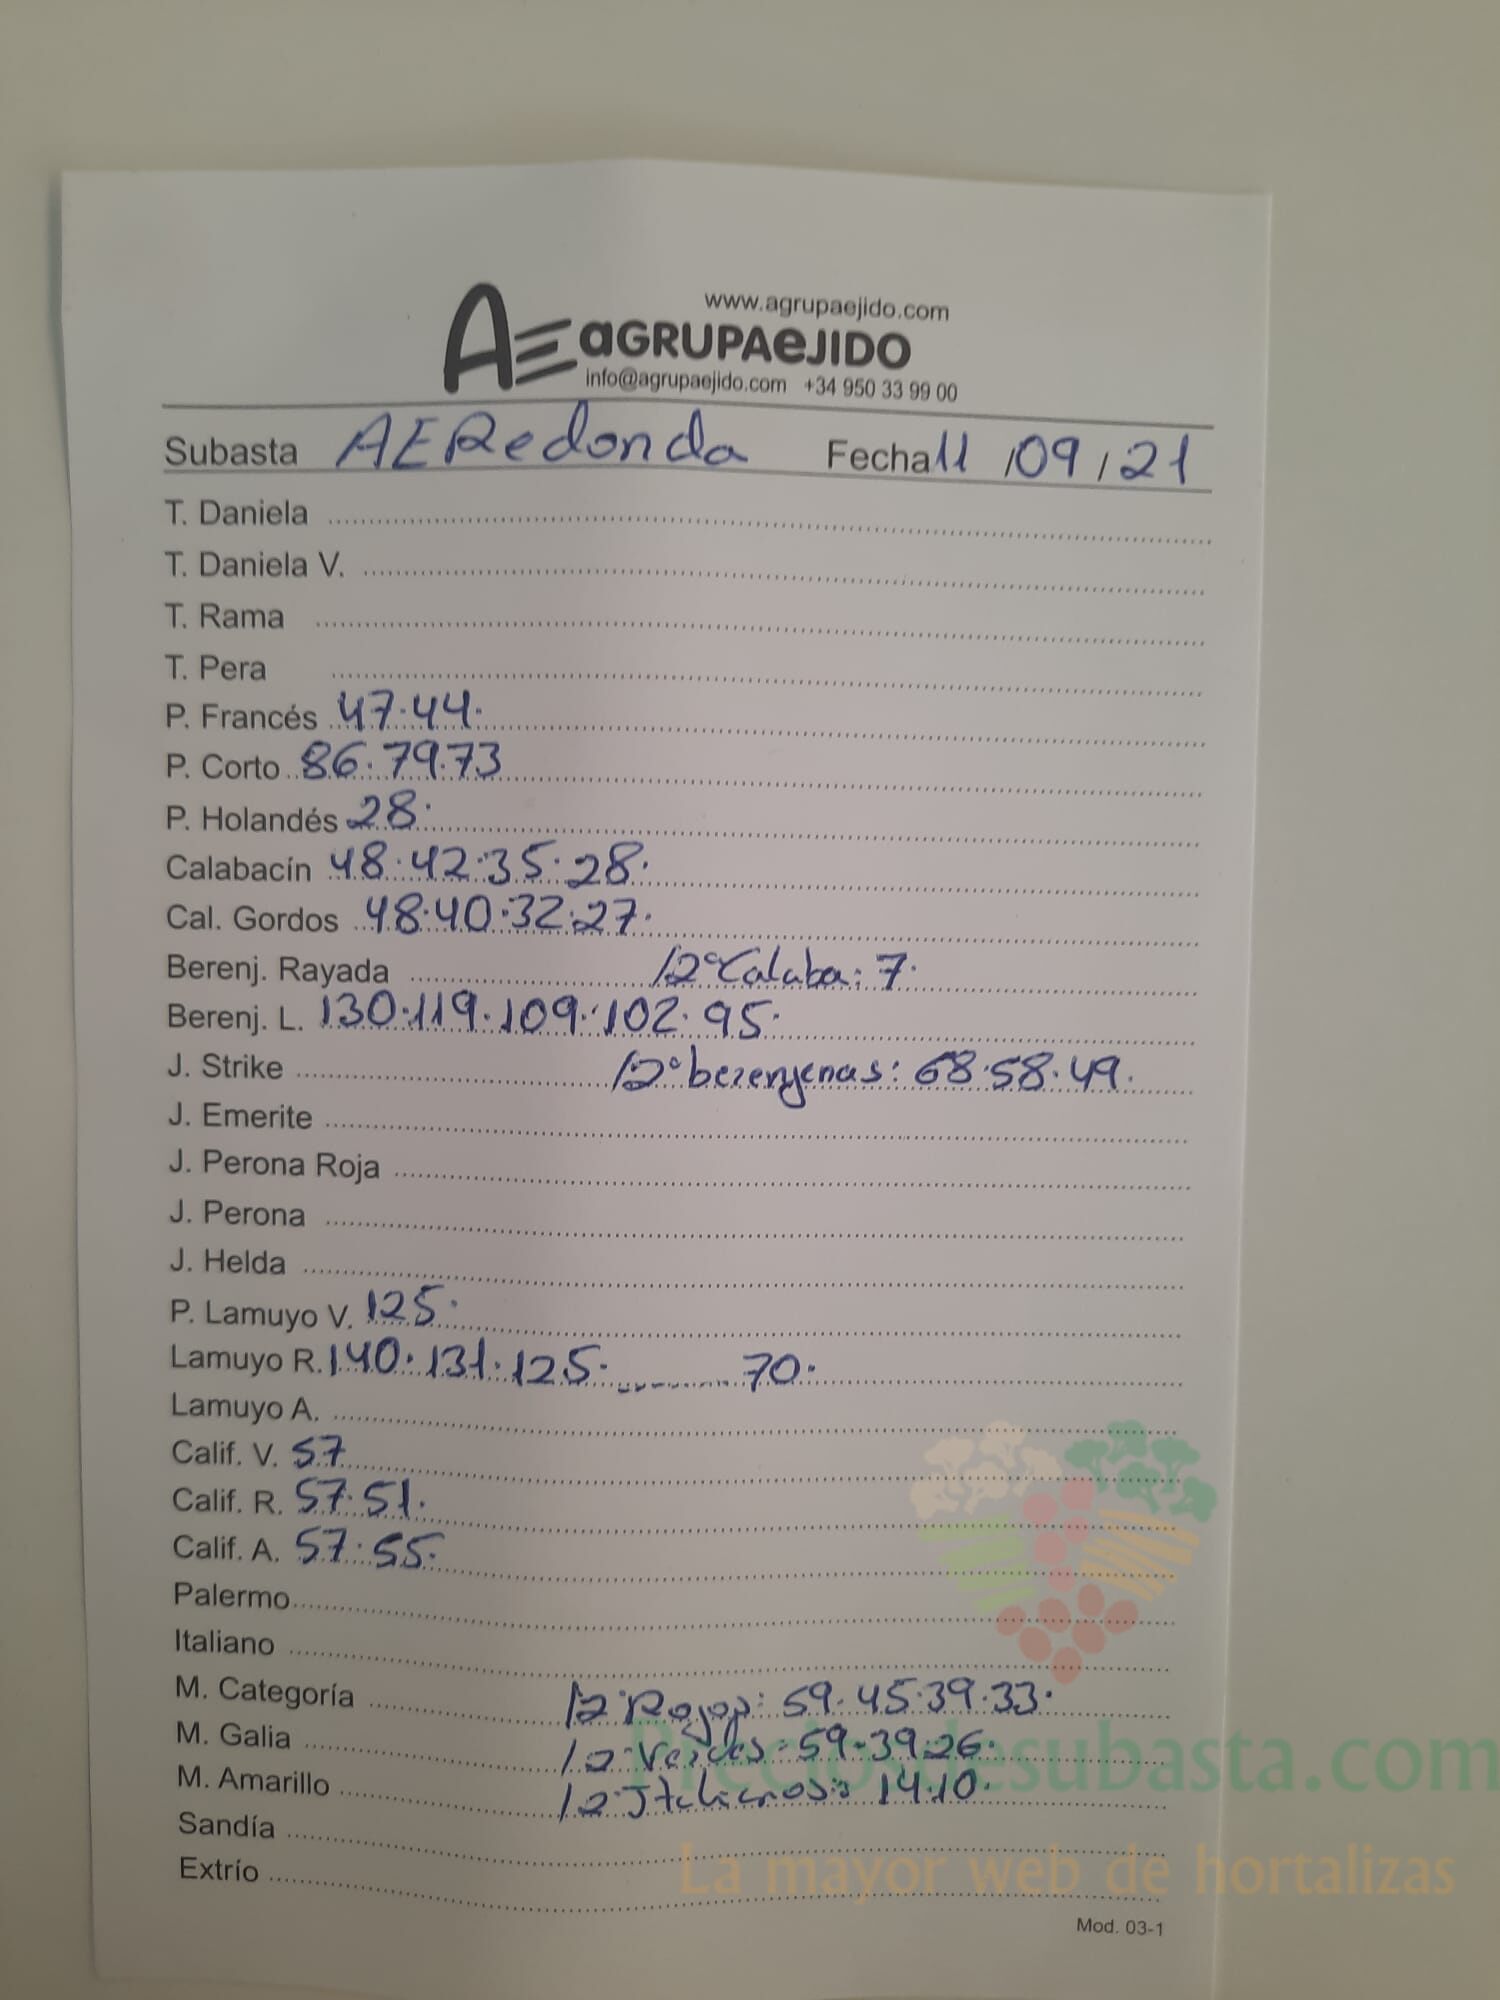 www.agrupaejido.com
AE aGRUPAeJIDO
info@agrupaejido.com +34 950 33 99 00
Subasta AERedonda Fecha 11/09/21
T. Daniela
T. Daniela V.
T. Rama
T. Pera
P. Francés 47.44.
P. Corto 86.79.73
P. Holandés 28.
Calabacín 48.42.35.28.
Cal. Gordos 48.40.32.27.
Berenj. Rayada /2ªCalaba: 7.
Berenj. L. 130.119.109.102.95.
J. Strike /2ªberenjenas: 68.58.49.
J. Emerite
J. Perona Roja
J. Perona
J. Helda
P. Lamuyo V. 125.
Lamuyo R. 140.131.125. ------- 70.
Lamuyo A.
Calif. V. 57
Calif. R. 57.51.
Calif. A. 57.55.
Palermo
Italiano
M. Categoría /2ªRojos: 59.45.39.33.
M. Galia /2ªVerdes: 59.39.26.
M. Amarillo /2ªItalianos: 14.10.
Sandía
Extrío
Preciosdesubasta.com
La mayor web de hortalizas
Mod. 03-1